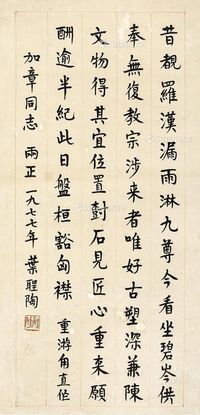 昔觀羅漢漏雨淋九尊今看坐碧岑供
奉無復教宗涉来者唯好古塑深兼陳
文物得其宜位置對石見匠心重来願
酬逾半紀此日盤桓豁匈襟 重游甪直作
加章同志 兩正 一九七七年 葉聖陶